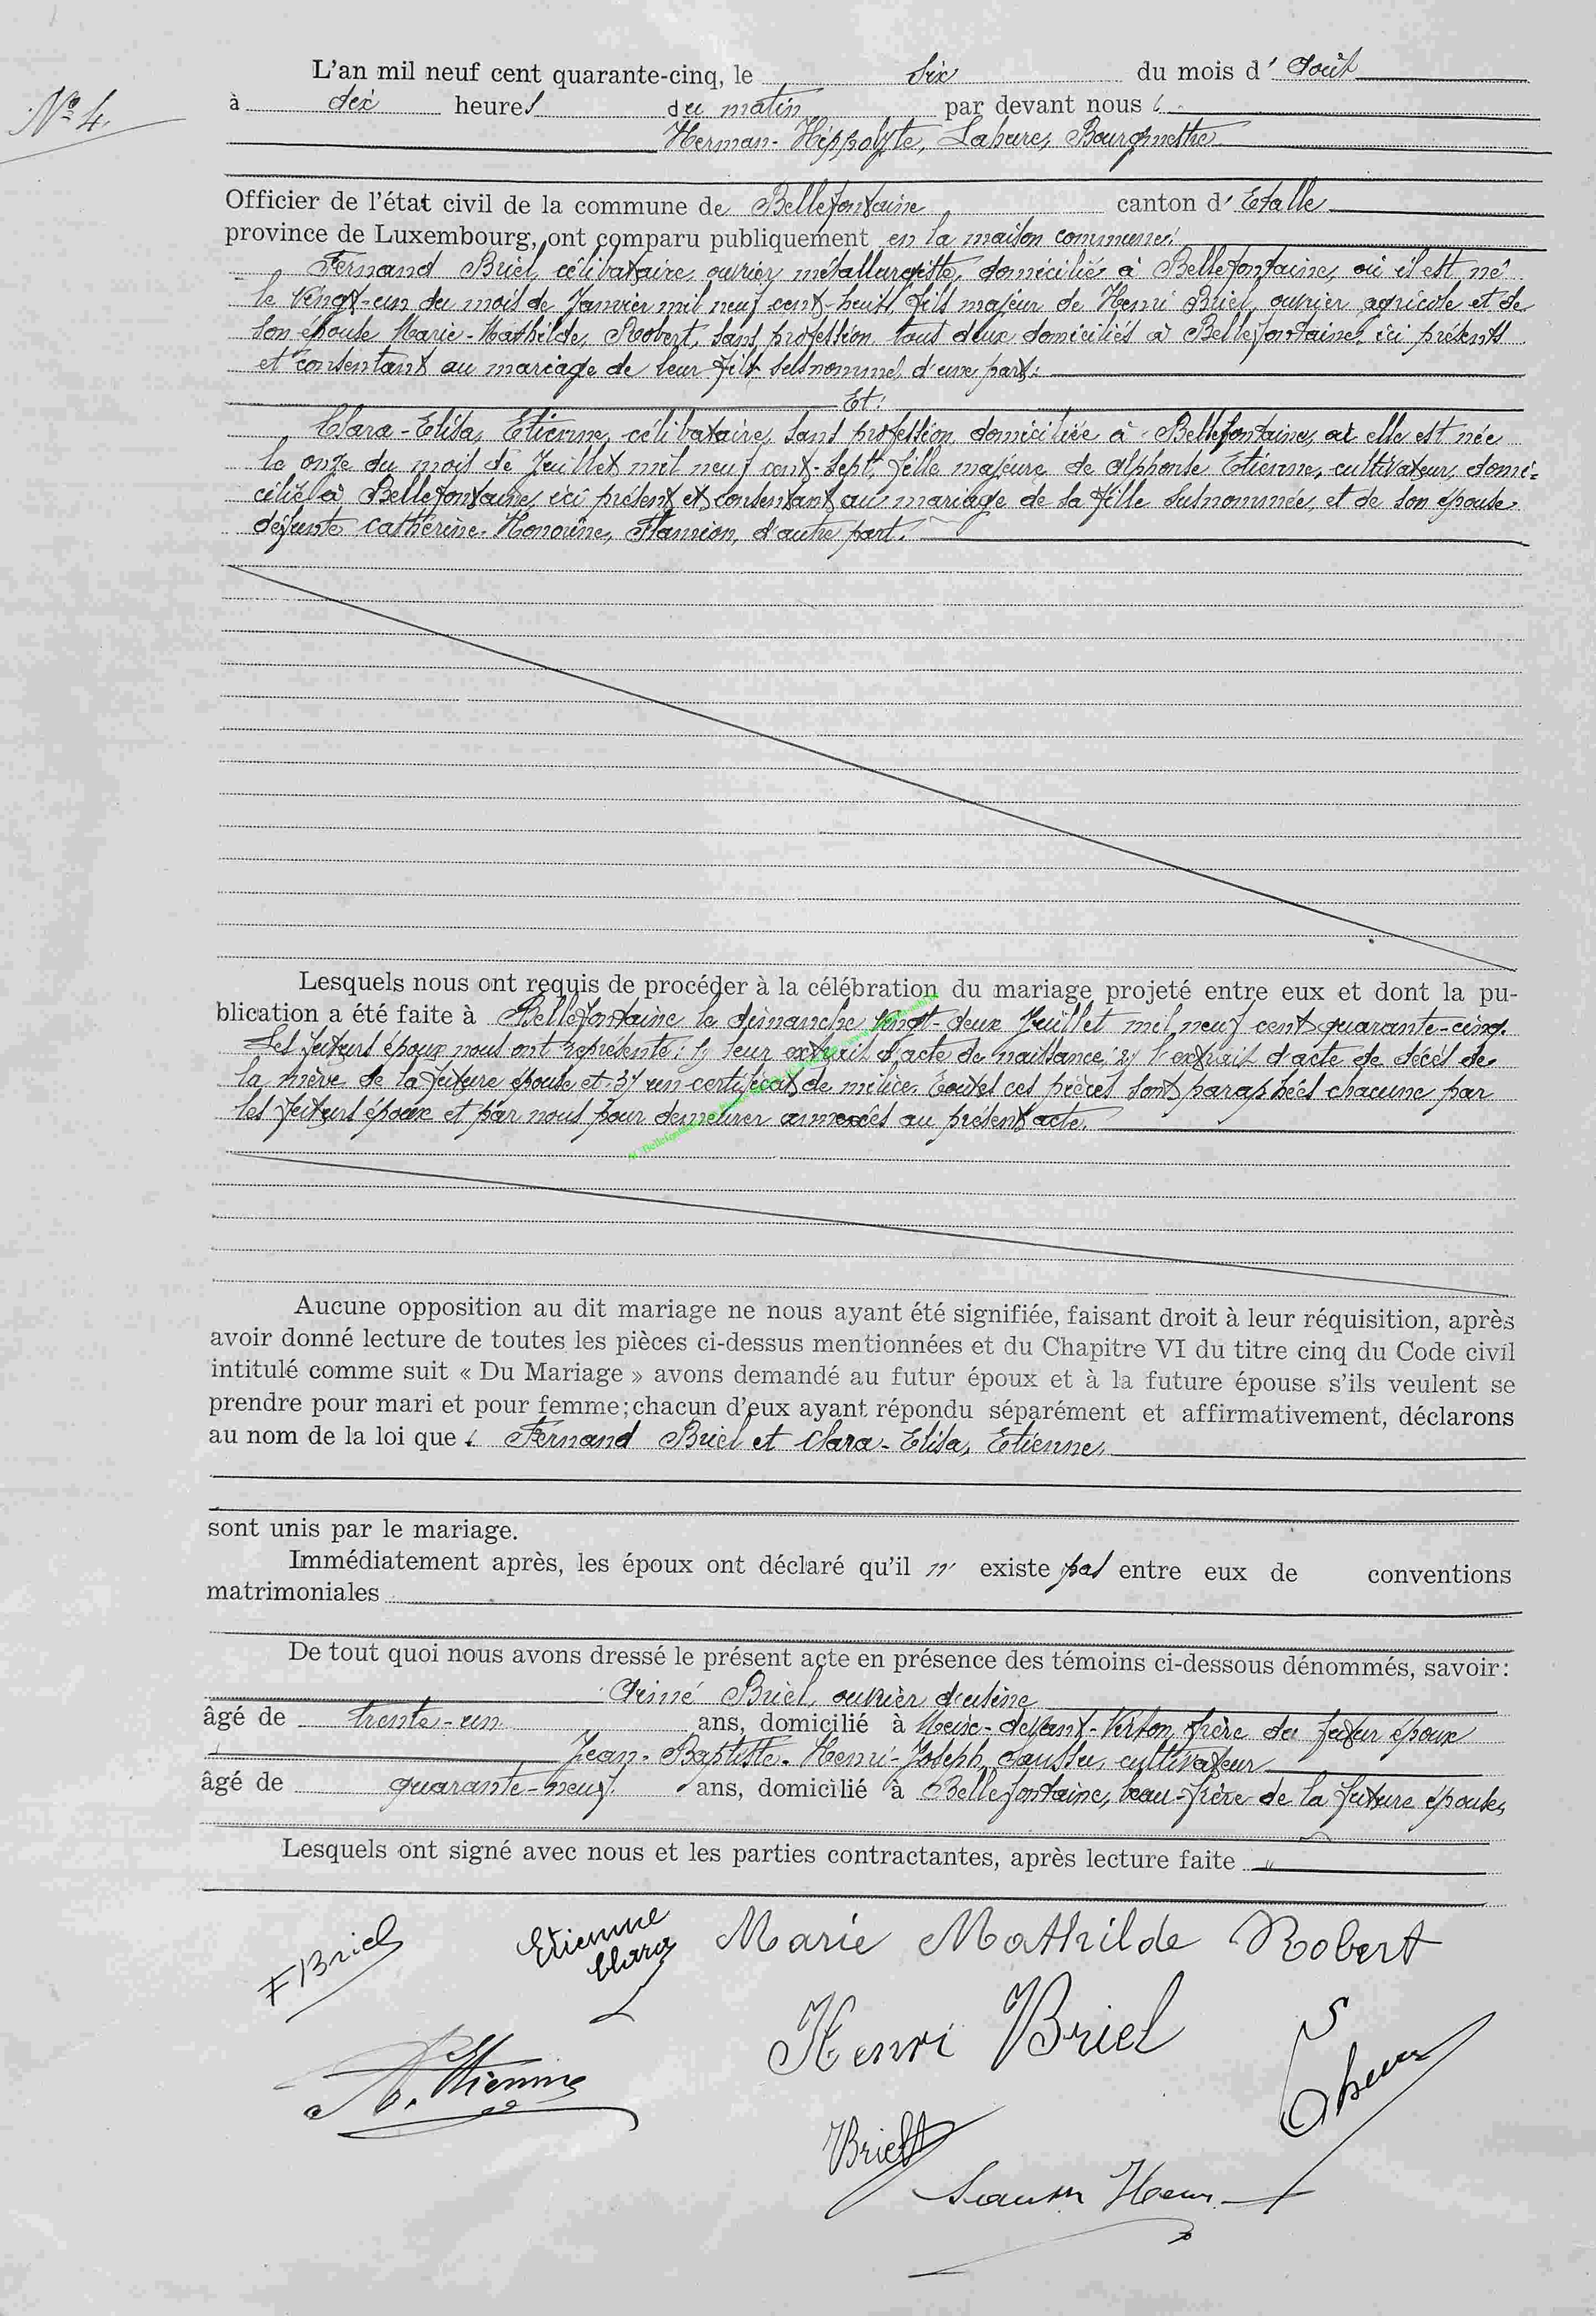 L'an mil neuf cent quarante-cinq, le six du mois d' Août
N° 4.
à dix heures du matin par devant nous
Herman-Hippolyte, Lahure, Bourgmestre
Officier de l'état civil de la commune de Bellefontaine canton d' Etalle
province de Luxembourg, ont comparu publiquement en la maison commune:
Fernand Briel, célibataire, ouvrier métallurgiste, domicilié à Bellefontaine, où il est né
le vingt-un du mois de Janvier mil neuf cent-huit, fils majeur de Henri Briel, ouvrier agricole et de
son épouse Marie-Mathilde, Robert, sans profession, tous deux domiciliés à Bellefontaine, ici présents
et consentant au mariage de leur fils susnommé, d'une part:
Et:
Clara-Elisa, Etienne, célibataire, sans profession, domiciliée à Bellefontaine, où elle est née
le onze du mois de Juillet mil neuf cent-sept, fille majeure de Alphonse Etienne, cultivateur, domi-
cilié à Bellefontaine, ici présent et consentant au mariage de sa fille susnommée, et de son épouse
défunte Catherine-Honorine, Flamion, d'autre part.
Lesquels nous ont requis de procéder à la célébration du mariage projeté entre eux et dont la pu-
blication a été faite à Bellefontaine le dimanche vingt-deux Juillet mil neuf cent quarante-cinq.
Les futurs époux nous ont représenté: 1) leur extrait d'acte de naissance; 2) l'extrait d'acte de décès de
la mère de la future épouse et 3) un certificat de milice. Toutes ces pièces sont paraphées chacune par
les futurs époux et par nous pour demeurer annexées au présent acte.
Aucune opposition au dit mariage ne nous ayant été signifiée, faisant droit à leur réquisition, après
avoir donné lecture de toutes les pièces ci-dessus mentionnées et du Chapitre VI du titre cinq du Code civil
intitulé comme suit « Du Mariage » avons demandé au futur époux et à la future épouse s'ils veulent se
prendre pour mari et pour femme; chacun d'eux ayant répondu séparément et affirmativement, déclarons
au nom de la loi que Fernand Briel et Clara-Elisa, Etienne,
sont unis par le mariage.
Immédiatement après, les époux ont déclaré qu'il n' existe pas entre eux de conventions
matrimoniales
De tout quoi nous avons dressé le présent acte en présence des témoins ci-dessous dénommés, savoir:
Aimé Briel, ouvrier d'usine
âgé de trente-un ans, domicilié à Meix-devant-Virton, frère du futur époux
Jean-Baptiste-Henri-Joseph, cultivateur
âgé de quarante-neuf ans, domicilié à Bellefontaine, beau-frère de la future épouse,
Lesquels ont signé avec nous et les parties contractantes, après lecture faite
F Briel
Etienne Clara
Marie Mathilde Robert
Henri Briel
Etienne
Briel